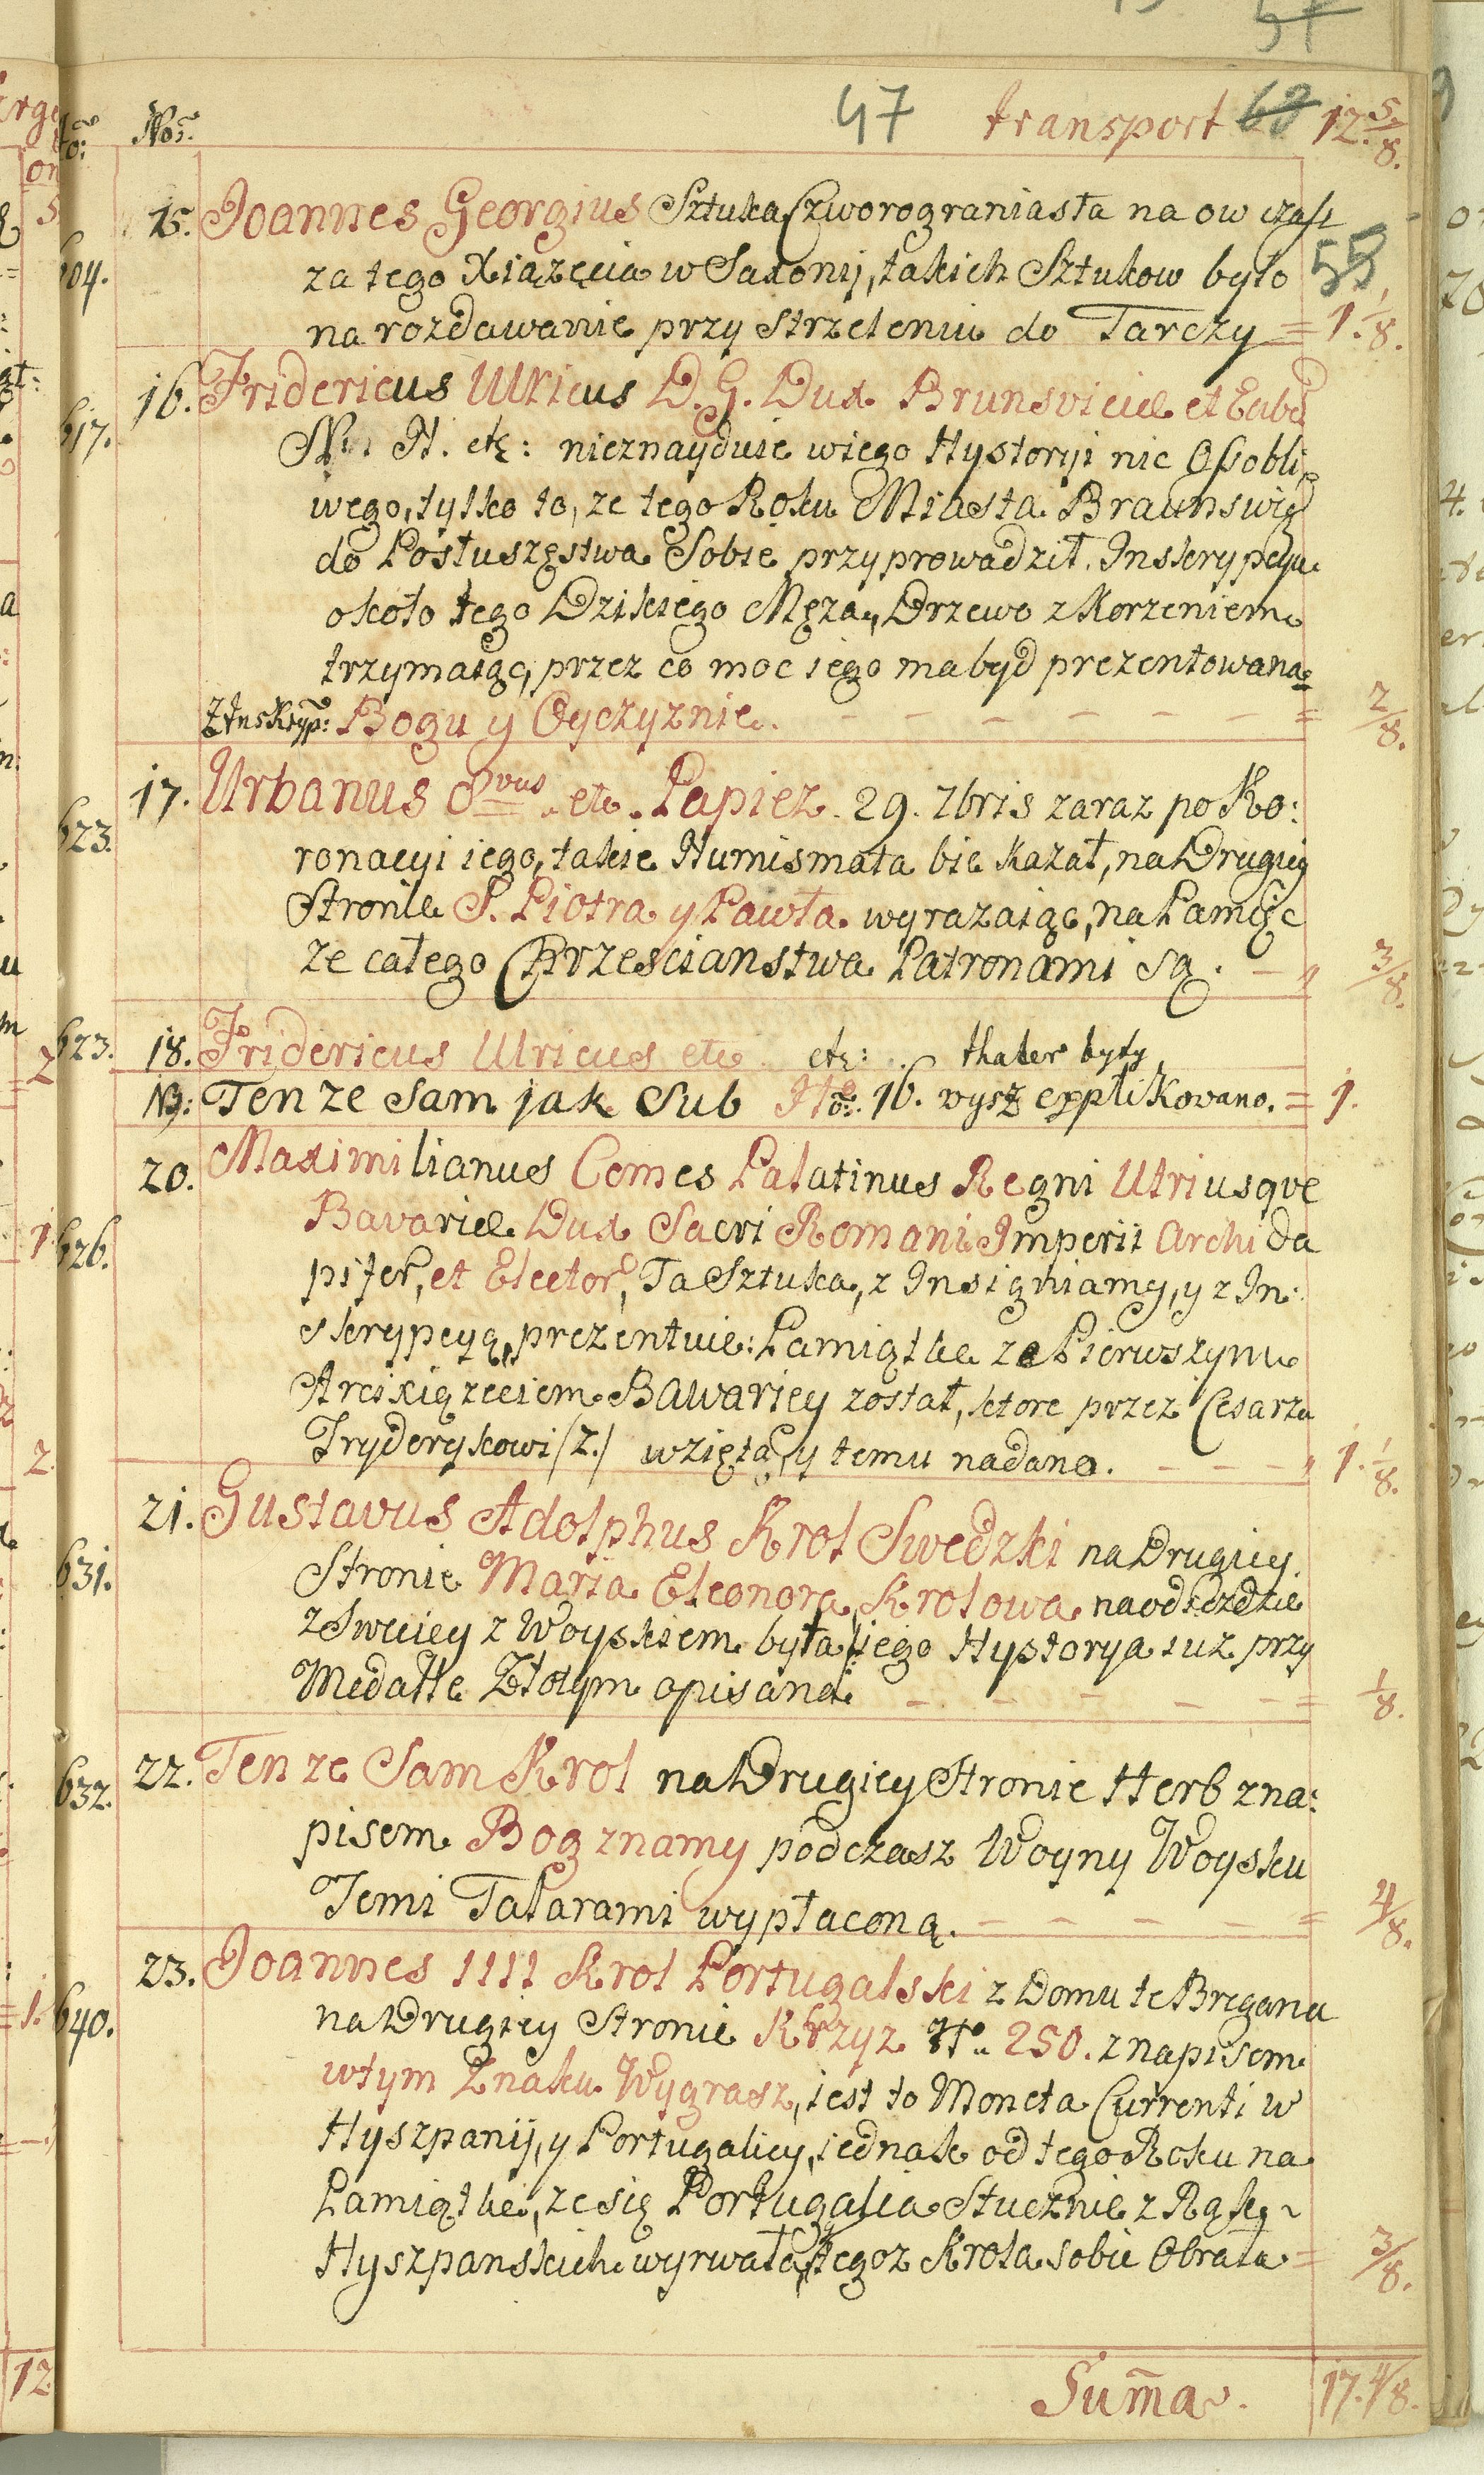 47 transport 68 12. 5/8.
Nos.
15. Joannes Georgius Sztuka Czworograniasta na ow czas
604. za tego Xiązęcia w Saxonij, takich Sztukow było 55
na rozdawanie przy strzeleniu do Tarczy = 1. 1/8.
16. Fridericus Ulricus D. G. Dux Brunsviciæ et
617. etc: nieznayduie wiego Hystoryi nic Osobli
wego, tylko to, ze tego Roku Miasta Braunswig
do Posłuszęstwa Sobie przyprowadził. Inskrypcyu
około tego Dzikiego Męza, Drzewo z Korzeniem
trzymaiąc, przez co moc iego ma byd prezentowana =
z Inskryp: Bogu y Oyczyznie. - - - - - - = 2/8.
17. Urbanus 8vus etc. Papiez. 29. 7bris zaraz po Ko:
623. ronacyi iego, takie Numismata bic kazał, na Drugiey
Stronie S. Piotra y Pawła wyrazaiąc, na Pamięc
ze całego Chrzescianstwa Patronami są. - " 3/8.
623. 18. Fridericus Ulricus etc etc: thaler były
19: Ten ze Sam jak Sub No: 16. wysz explikowano. = 1.
20. Maximilianus Comes Palatinus Regni Utriusqve
626. Bavariæ Dux Sacri Romani Imperii Archi da
pifer, et Elector, Ta Sztuka, z Insigniamy, y z In:
skrypcyą, prezentuie: Pamiątke ze Pierwszym
Arcixiązeciem Bawariey został, ktore przez Cesarza
Fryderykowi /z./ wziętą, y temu nadano. - - - " 1. 1/8.
21. Gustavus Adolphus Krol Swedzki na Drugiey
631. Stronie Maria Eleonora Krolowa na odiezdzie
z Sweciey z Woyskiem była, iego Hystorya iuz przy
Medalle Złotym opisana: - - - - - = 1/8.
22. Ten ze Sam Krol na Drugiey Stronie Herb z na:
632. pisem Bog z namy podczasz Woyny Woysku
Temi Talarami wypłaconą. - - - - - = 4/8.
23. Joannes IIII Krol Portugalski z Domu te Bregana
640. na Drugiey Stronie Krzyz No. 250. z napisem
w tym Znaku Wygrasz, iest to Moneta Currenti w
Hyszpanij, y Portugaliey, iednak od tego Roku na
Pamiątke, ze się Portugalia Stucznie z Rąk
Hyszpanskich wyrwała, tegoz Krola sobie Obrała = 3/8.
Suma. 17. 4/8.